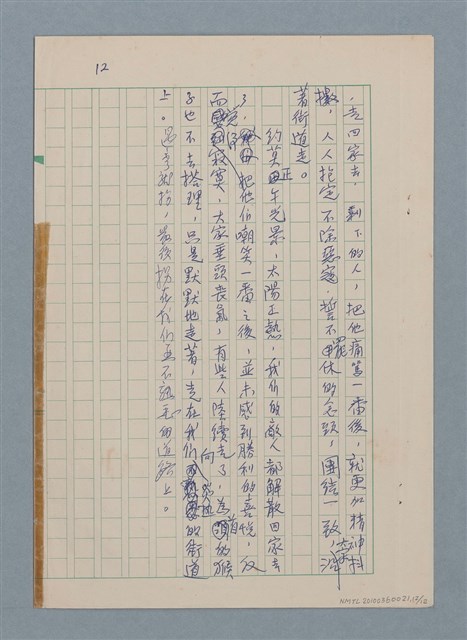 12
，走回家去，剩下的人，把他痛罵一番後，就更加精神抖
擻，人人抱定不除惡寇，誓不罷休的念頭，團結一致，大夥沿
著街道走。
約莫正午光景，太陽正熱，我們的敵人都解散回家去
了，把他們嘲笑一番之後，並未感到勝利的喜悅，反
而覺得寂寞，大家垂頭喪氣，有些人陸續走了，為首的猴
子也不去搭理，只是默默地走著，走在我們向的街道
上。最後拐在我們並不認的道路上。
NMTL20100360021,12/12